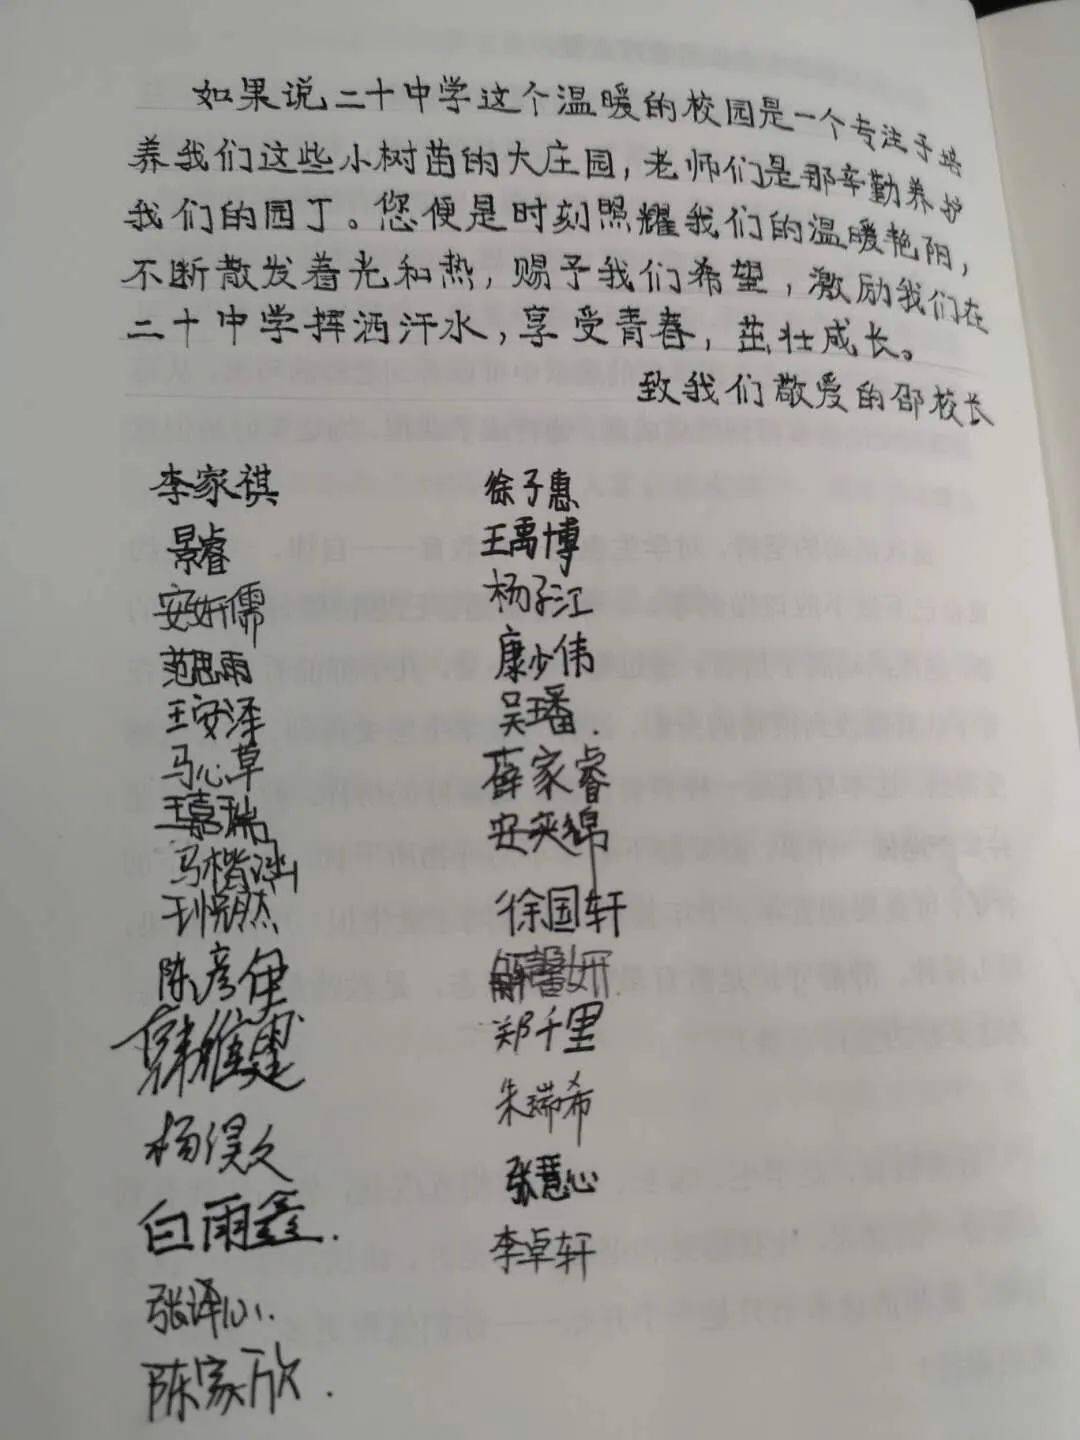 如果说二十中学这个温暖的校园是一个专注于培
养我们这些小树苗的大庄园，老师们是那辛勤养护
我们的园丁。您便是时刻照耀我们的温暖艳阳，
不断散发着光和热，赐予我们希望，激励我们在
二十中学挥洒汗水，享受青春，茁壮成长。
致我们敬爱的邵校长
李家祺
景睿
安妍儒
范思雨
王安泽
马心草
王嘉瑞
马楷
陈彦伊
韩维
杨
白雨鑫.
张译心.
陈家欣.
徐子惠
王禹博
杨子江
康少伟
吴璠.
薛家睿
安英绵
徐国轩
解馨妍
郑千里
朱瑞希
张慧心
李卓轩